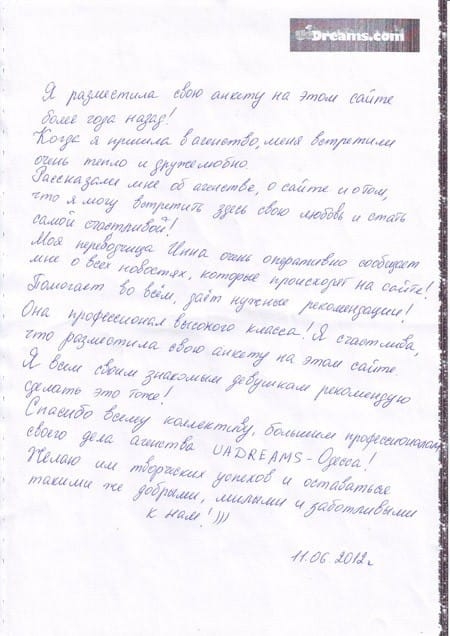 UaDreams.com
Я разместила свою анкету на этом сайте
более года назад!
Когда я пришла в агенство, меня встретили
очень тепло и дружелюбно.
Рассказали мне об агенстве, о сайте и о том,
что я могу встретить здесь свою любовь и стать
самой счастливой!
Моя переводчица Инна очень оперативно сообщает
мне о всех новостях, которые происходят на сайте!
Помогает во всём, даёт нужные рекомендации!
Она профессионал высокого класса! Я счастлива,
что разместила свою анкету на этом сайте.
Я всем своим знакомым девушкам рекомендую
сделать это тоже!
Спасибо всему коллективу, большим профессионалам
своего дела агенства UADREAMS - Одесса!
Желаю им творческих успехов и оставаться
такими же добрыми, милыми и заботливыми
к нам!)))
11.06.2012г